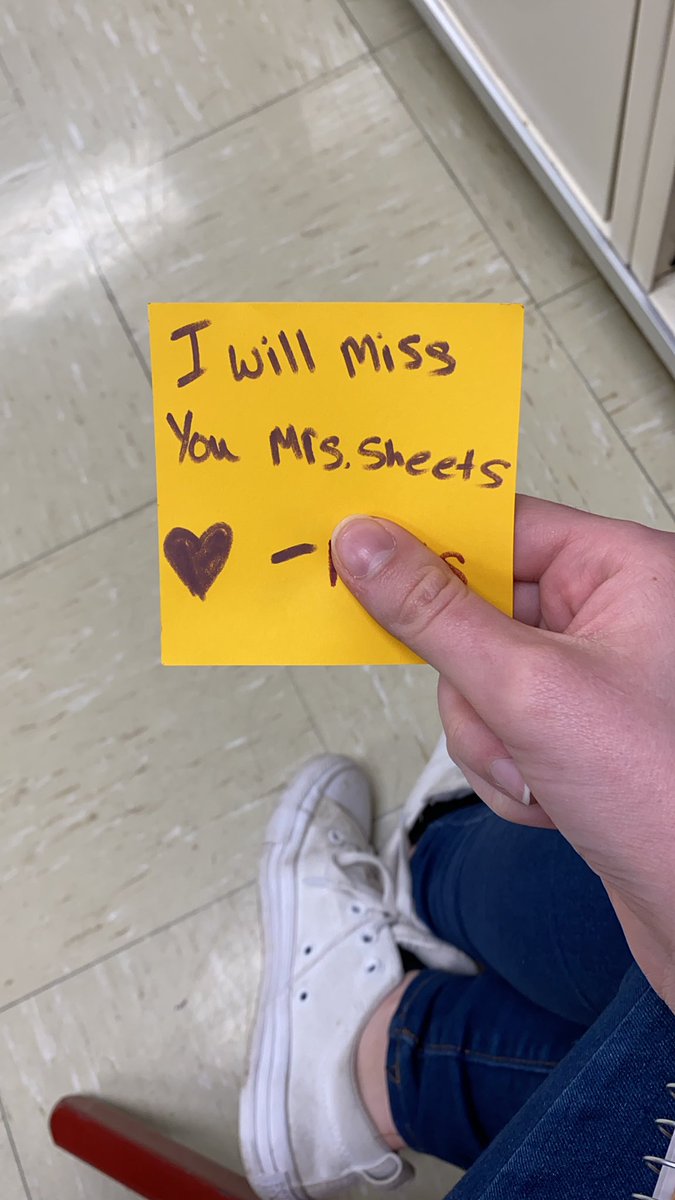 I will Miss
You Mrs. Sheets
♥ -